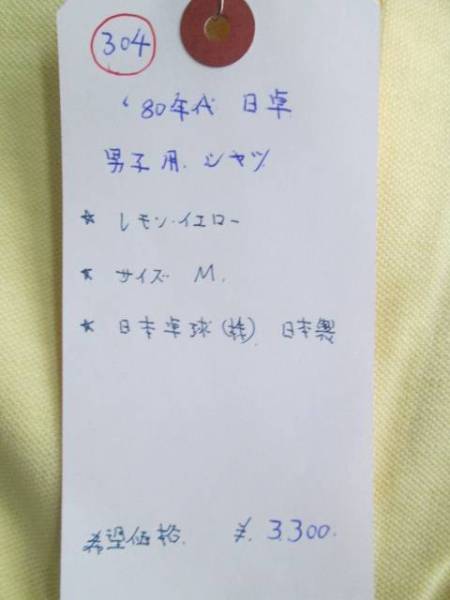 304
'80年代 日卓
男子用.シャツ
★ レモン・イエロー
★ サイズ M.
★ 日本卓球(株) 日本製
希望価格. ¥.3,300.